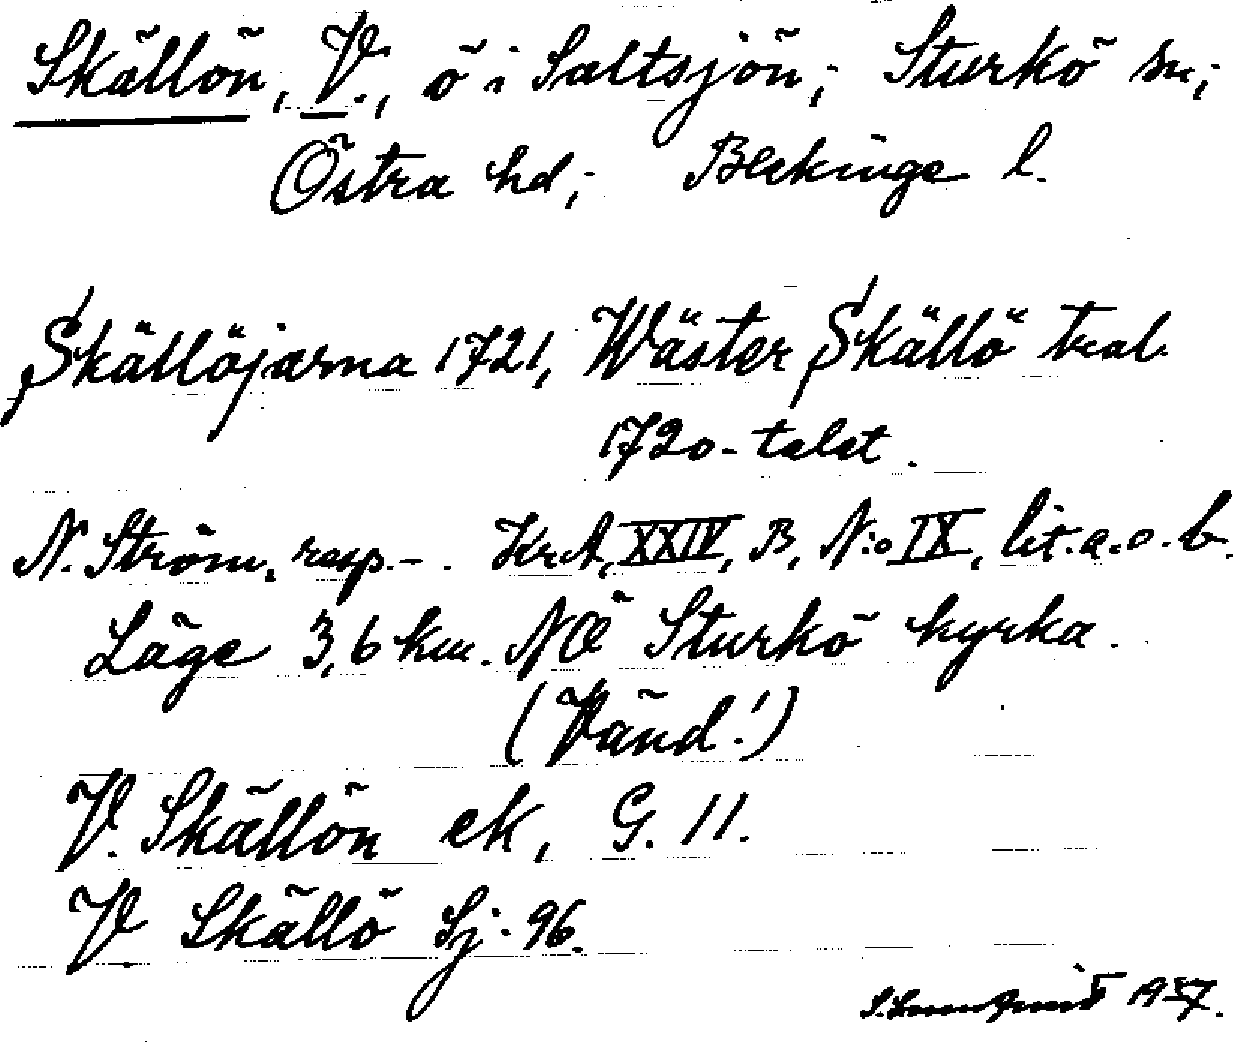 Skällön, V., ö i Saltsjön; Sturkö sn;
Östra hd; Blekinge l.
Skällöjarna 1721, Wäster Skällö tral.
1720-talet.
N. Ström, resp. - . KrA, XXIV, B, N:o IX, lit. a. o. b.
Läge 3,6 km. NÖ Sturkö kyrka.
(Vänd!)
V. Skällön ek, G. 11.
V Skällö Sj. 96.
1937.